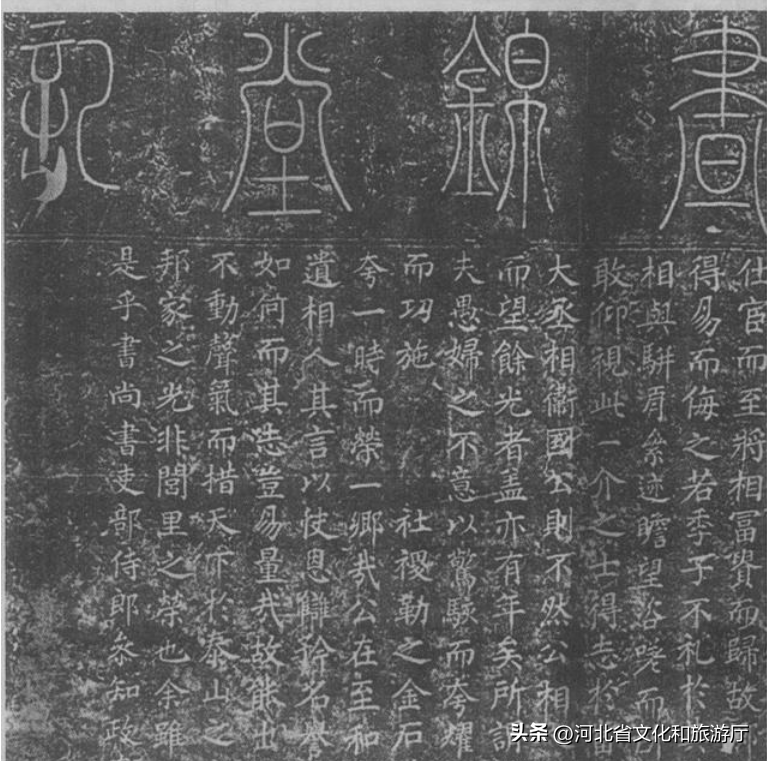 晝錦堂記
仕宦而至將相冨貴而歸故
得易而侮之若季子不礼於
相與駢肩絫迹瞻望咨嗟而
敢仰視此一介之士得志於
大丞相衞國公則不然公相
而望餘光者盖亦有年矣所謂
夫愚婦之不意以驚駭而夸耀
而功施 社稷勒之金石
夸一時而榮一鄉哉公在至和
遺相人其言以快恩讎矜名譽
如何而其志豈易量哉故能出
不動聲氣而措天下於泰山之
邦家之光非閭里之榮也余雖
是乎書尚書吏部侍郎叅知政
头条 @河北省文化和旅游厅